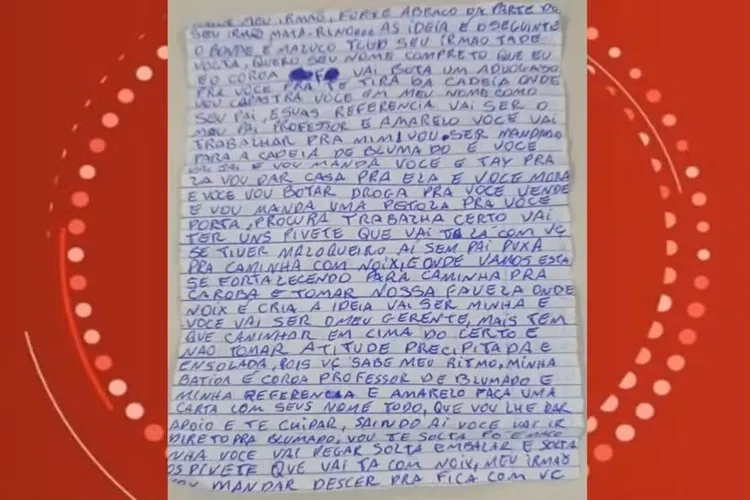 MEU IRMÃO, FORTE ABRAÇO DA PARTE DO
SEU IRMÃO MATA-RINDO AS IDEIA E O SEGUINTE
O BONDE E MAZUCO TUDO SEU IRMÃO TADE
VOLTA, QUERO SEU NOME COMPRETO QUE EU
E O COROA VAI BOTA UM ADVOGADO
PRA VOCE PRA TE TIRA DA CADEIA ONDE
VOU CAPASTRÁ VOCE EM MEU NOME COMO
SEU PAI, E SUAS REFERENCIA VAI SER O
MEU PAI PROFESSOR E AMARELO VOCE VAI
TRABALHAR PRA MIM, VOU SER MANDADO
PARA A CADEIA DE BLUMADO E VOCE
E VOU MANDA VOCE E TAY PRA
LA VOU DAR CASA PRA ELA E VOCE MORA
E VOCE VOU BOTAR DROGA PRA VOCE VENDE
E VOU MANDA UMA PETOZA PRA VOCE
PORTA, PROCURA TRABALHA CERTO VAI
TER UNS PIVETE QUE VAI TA LA COM VC
SE TIVER MALOQUEIRO AI SEM PAI PUXA
PRA CAMINHA COM NOIX, E ONDE VAMOS ESTA
SE FORTALECENDO PARA CAMINHA PRA
CAROBA E TOMAR NOSSA FAVEZA ONDE
NOIX E CRIA A IDEIA VAI SER MINHA E
VOCE VAI SER O MEU GERENTE, MAIS TEM
QUE CAMINHAR EM CIMA DO CERTO E
NÃO TOMAR ATITUDE PRECIPITADA E
ENSOLADA, POIS VC SABE MEU RITMO, MINHA
BATIDA E COROA PROFESSOR DE BLUMADO E
MINHA REFERENCIA E AMARELO FAÇA UMA
CARTA COM SEUS NOME TODO, QUE VOU LHE DAR
APOIO E TE CUIPAR, SAINDO AI VOCE VAI IR
DIRETO PRA BLUMADO, VOU TE SOLTA
NHA VOCE VAI PEGAR SOLTA EMBALAR E SOLTA
OS PIVETE QUE VAI TA COM NOIX, MEU IRMÃO
VOU MANDAR DESCER PRA FICA COM VC